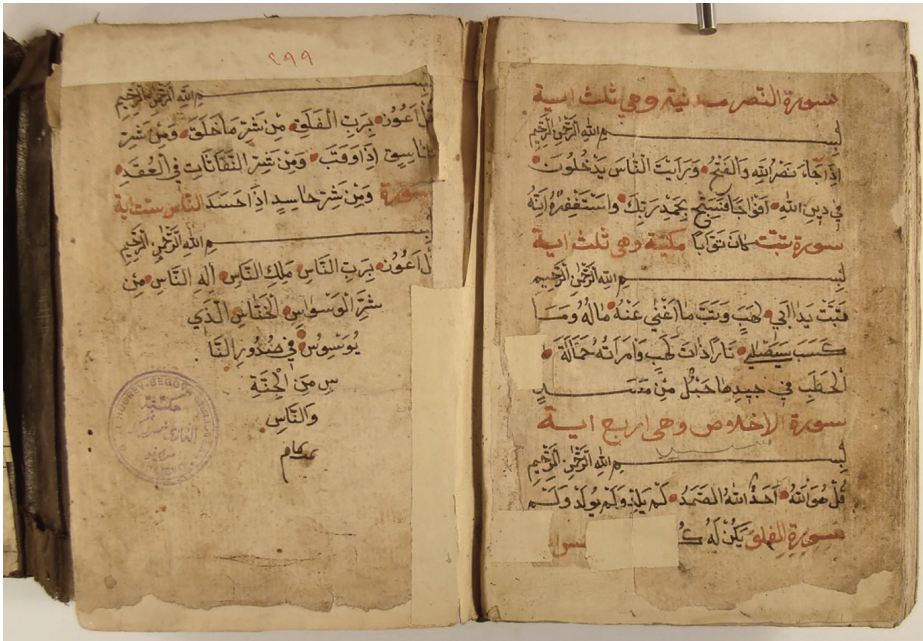 سورة النصر مدنية وهي ثلث اية
بِسْمِ اللهِ الرَّحْمٰنِ الرَّحِيمِ
اِذَا جَاءَ نَصْرُ اللهِ وَالْفَتْحُ وَرَاَيْتَ النَّاسَ يَدْخُلُونَ
فِي دِينِ اللهِ اَفْوَاجًا فَسَبِّحْ بِحَمْدِ رَبِّكَ وَاسْتَغْفِرْهُ اِنَّهُ
سورة تبت كَانَ تَوَّابًا مكية وهي ثلث اية
بِسْمِ اللهِ الرَّحْمٰنِ الرَّحِيمِ
تَبَّتْ يَدَا اَبِي لَهَبٍ وَتَبَّ مَا اَغْنٰى عَنْهُ مَالُهُ وَمَا
كَسَبَ سَيَصْلٰى نَارًا ذَاتَ لَهَبٍ وَامْرَاَتُهُ حَمَّالَةَ
الْحَطَبِ فِي جِيدِهَا حَبْلٌ مِنْ مَسَدٍ
سورة الاخلاص وهي اربع اية
بِسْمِ اللهِ الرَّحْمٰنِ الرَّحِيمِ
قُلْ هُوَ اللهُ اَحَدٌ اللهُ الصَّمَدُ لَمْ يَلِدْ وَلَمْ يُولَدْ وَلَمْ
سورة الفلق يَكُنْ لَهُ
٢٩٩
بِسْمِ اللهِ الرَّحْمٰنِ الرَّحِيمِ
قُلْ اَعُوذُ بِرَبِّ الْفَلَقِ مِنْ شَرِّ مَا خَلَقَ وَمِنْ شَرِّ
غَاسِقٍ اِذَا وَقَبَ وَمِنْ شَرِّ النَّفَّاثَاتِ فِي الْعُقَدِ
سورة وَمِنْ شَرِّ حَاسِدٍ اِذَا حَسَدَ الناس ست اية
بِسْمِ اللهِ الرَّحْمٰنِ الرَّحِيمِ
قُلْ اَعُوذُ بِرَبِّ النَّاسِ مَلِكِ النَّاسِ اِلٰهِ النَّاسِ مِنْ
شَرِّ الْوَسْوَاسِ الْخَنَّاسِ الَّذِي
يُوَسْوِسُ فِي صُدُورِ النَّا
سِ مِنَ الْجِنَّةِ
وَالنَّاسِ